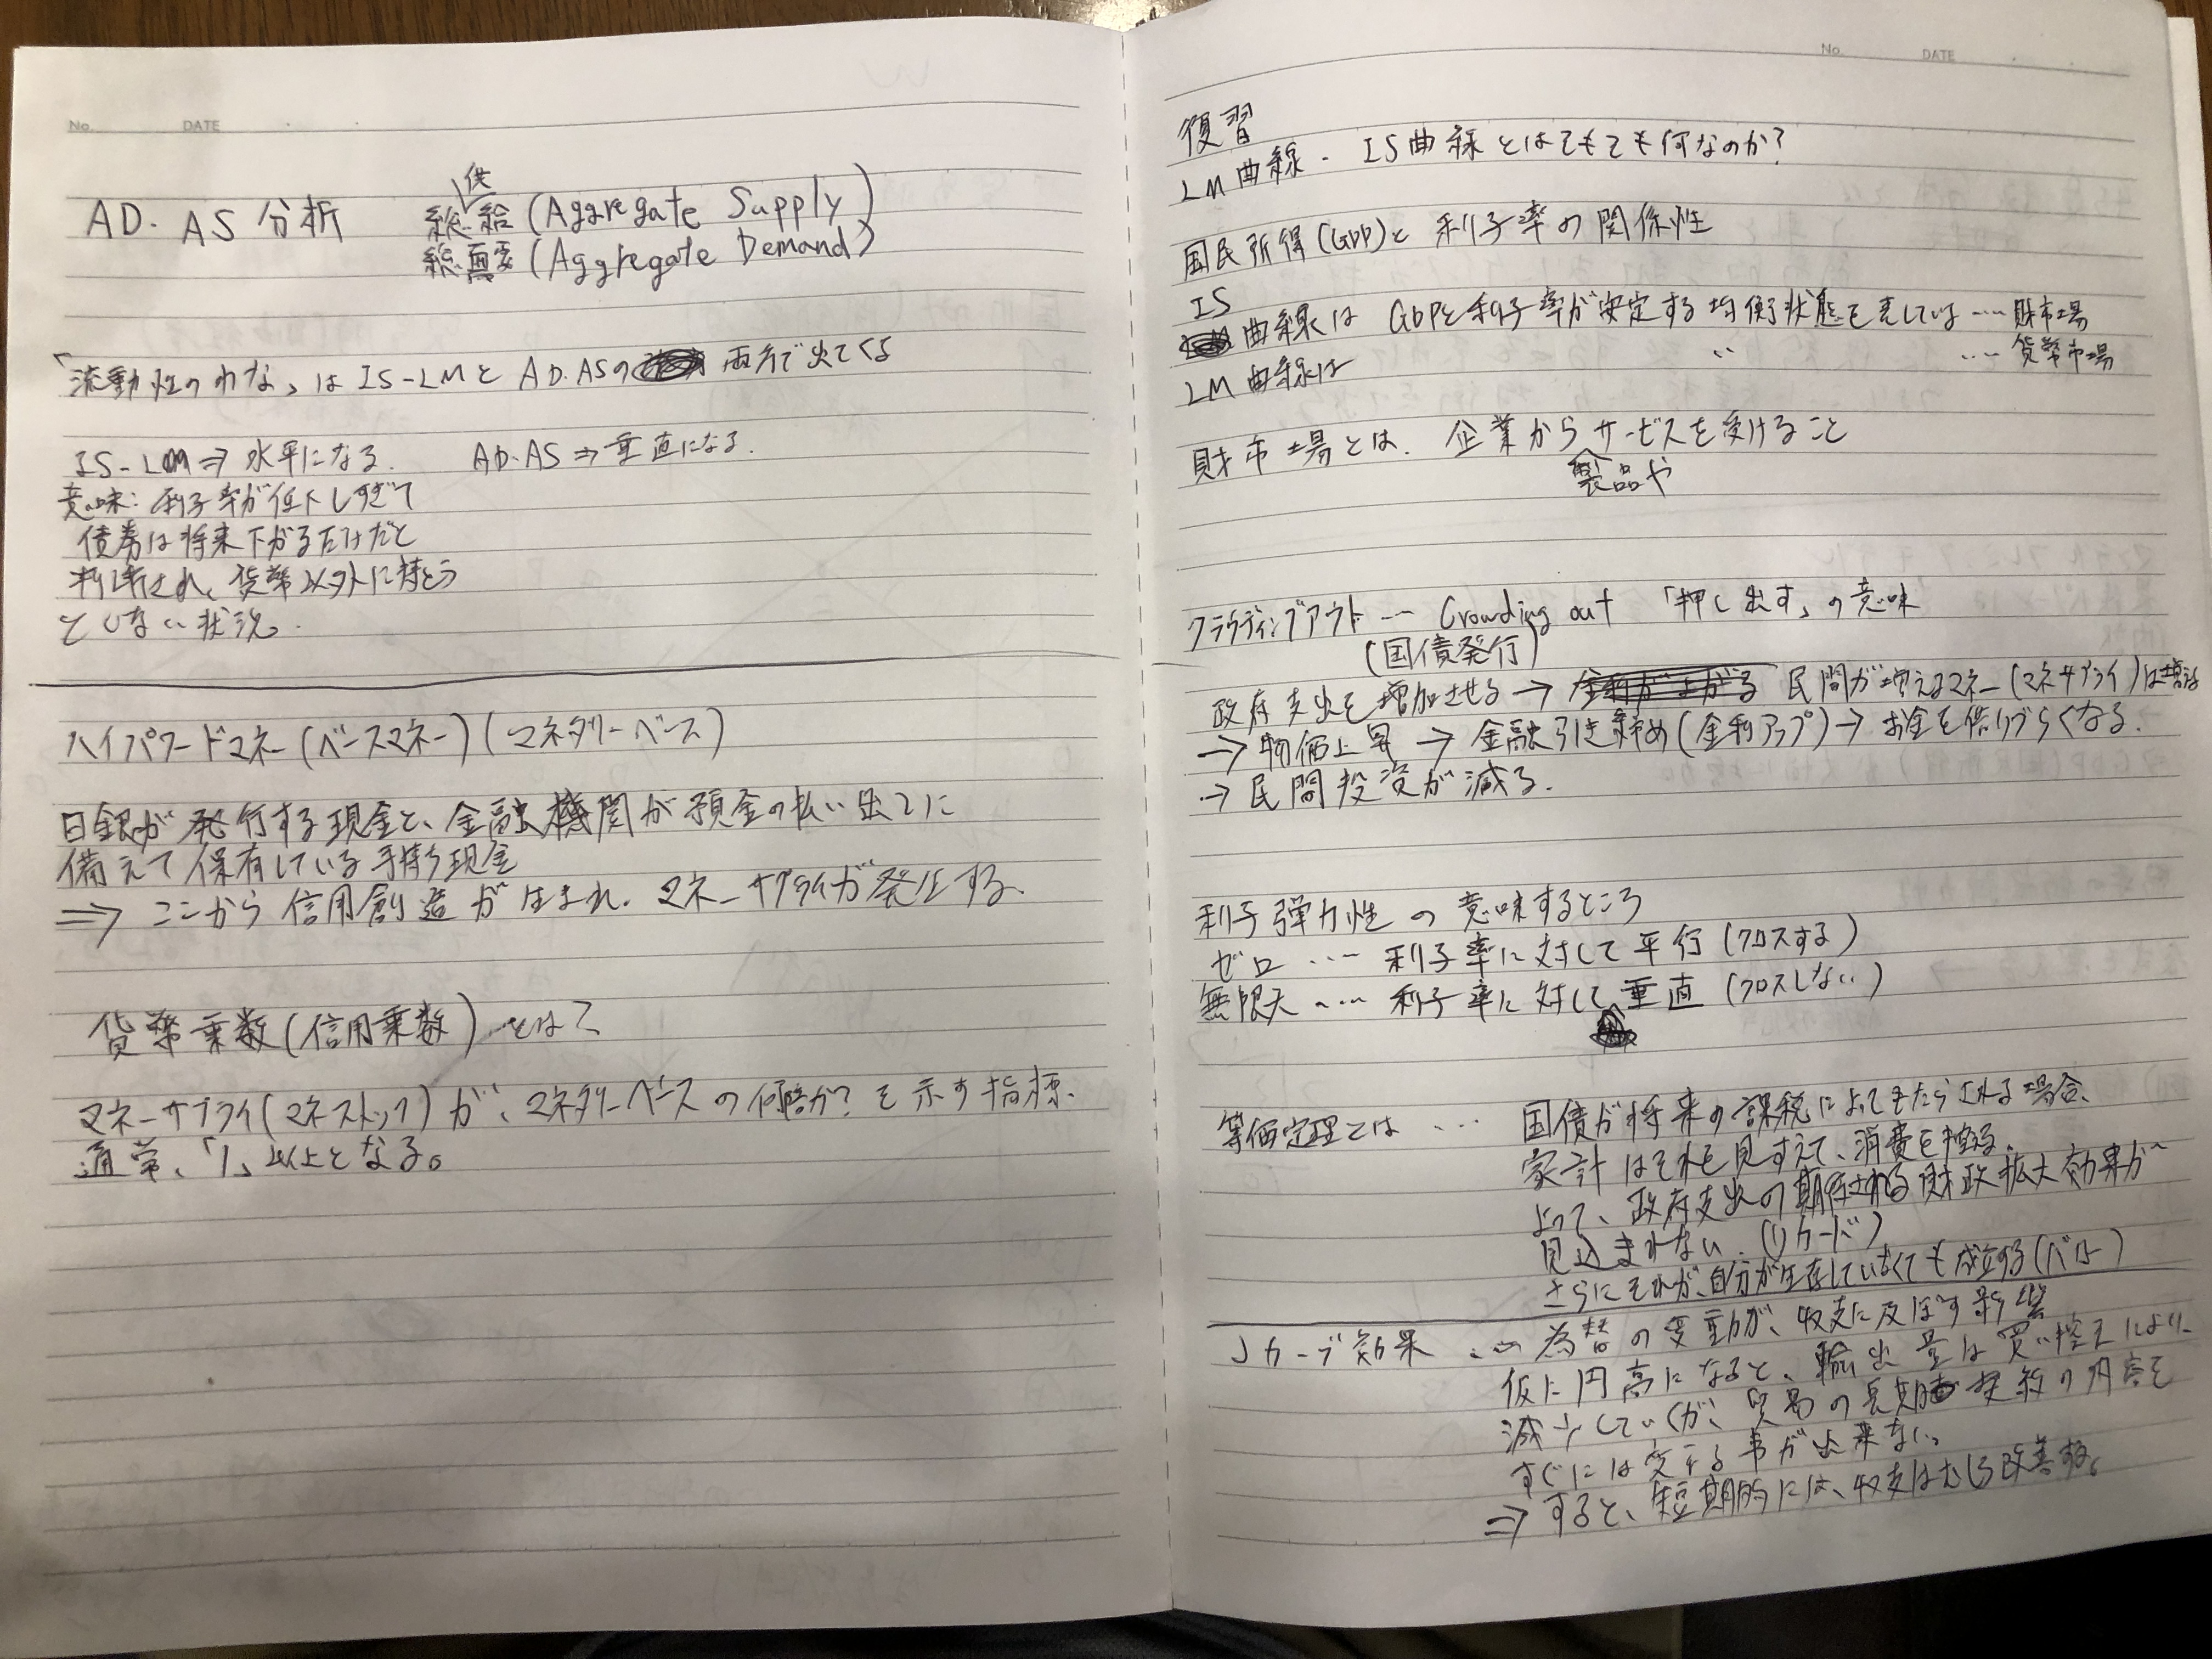 No. DATE
AD・AS分析 総供給 (Aggregate Supply)
総需要 (Aggregate Demand)
「流動性のわな」は IS-LMと AD.ASの 両方で出てくる
IS-LM⇒水平になる. AD.AS⇒垂直になる.
意味: 利子率が低下しすぎて
債券は将来下がるだけだと
判断され、貨幣以外に持とう
としない状況。
ハイパワードマネー (ベースマネー) (マネタリーベース)
日銀が発行する現金と、金融機関が預金の払い出しに
備えて保有している手持ち現金
⇒ ここから信用創造が生まれ. マネーサプライが発生する.
貨幣乗数 (信用乗数) とは?
マネーサプライ(マネストック)が、マネタリーベースの何倍か?を示す指標.
通常、「1」以上となる。
No. DATE
復習
LM曲線・IS曲線とはそもそも何なのか?
国民所得(GDP)と 利子率の関係性
IS曲線は GDPと利子率が安定する均衡状態を表している …… 財市場
LM曲線は 〃 …… 貨幣市場
財市場とは. 企業から製品やサービスを受けること
クラウディングアウト … Crowding out 「押し出す」の意味
(国債発行)
政府支出を増加させる → 金利が上がる 民間が増えるマネー(マネサプライ)は増える
→ 物価上昇 → 金融引き締め(金利アップ) → お金を借りづらくなる.
→ 民間投資が減る.
利子弾力性の意味するところ
ゼロ …… 利子率に対して平行 (クロスする)
無限大 …… 利子率に対して垂直 (クロスしない)
等価定理とは … 国債が将来の課税によってもたらされる場合、
家計はそれを見すえて、消費を控える.
よって、政府支出の期待される財政拡大効果が
見込まれない. (リカード)
さらにそれが、自分が生存していなくても成立する(バロー)
Jカーブ効果 … 為替の変動が、収支に及ぼす影響
仮に円高になると、輸出量は買い控えにより、
減少していくが、貿易の長期 契約の内容を
すぐには変える事が出来ない。
⇒ すると、短期的には、収支はむしろ改善する。